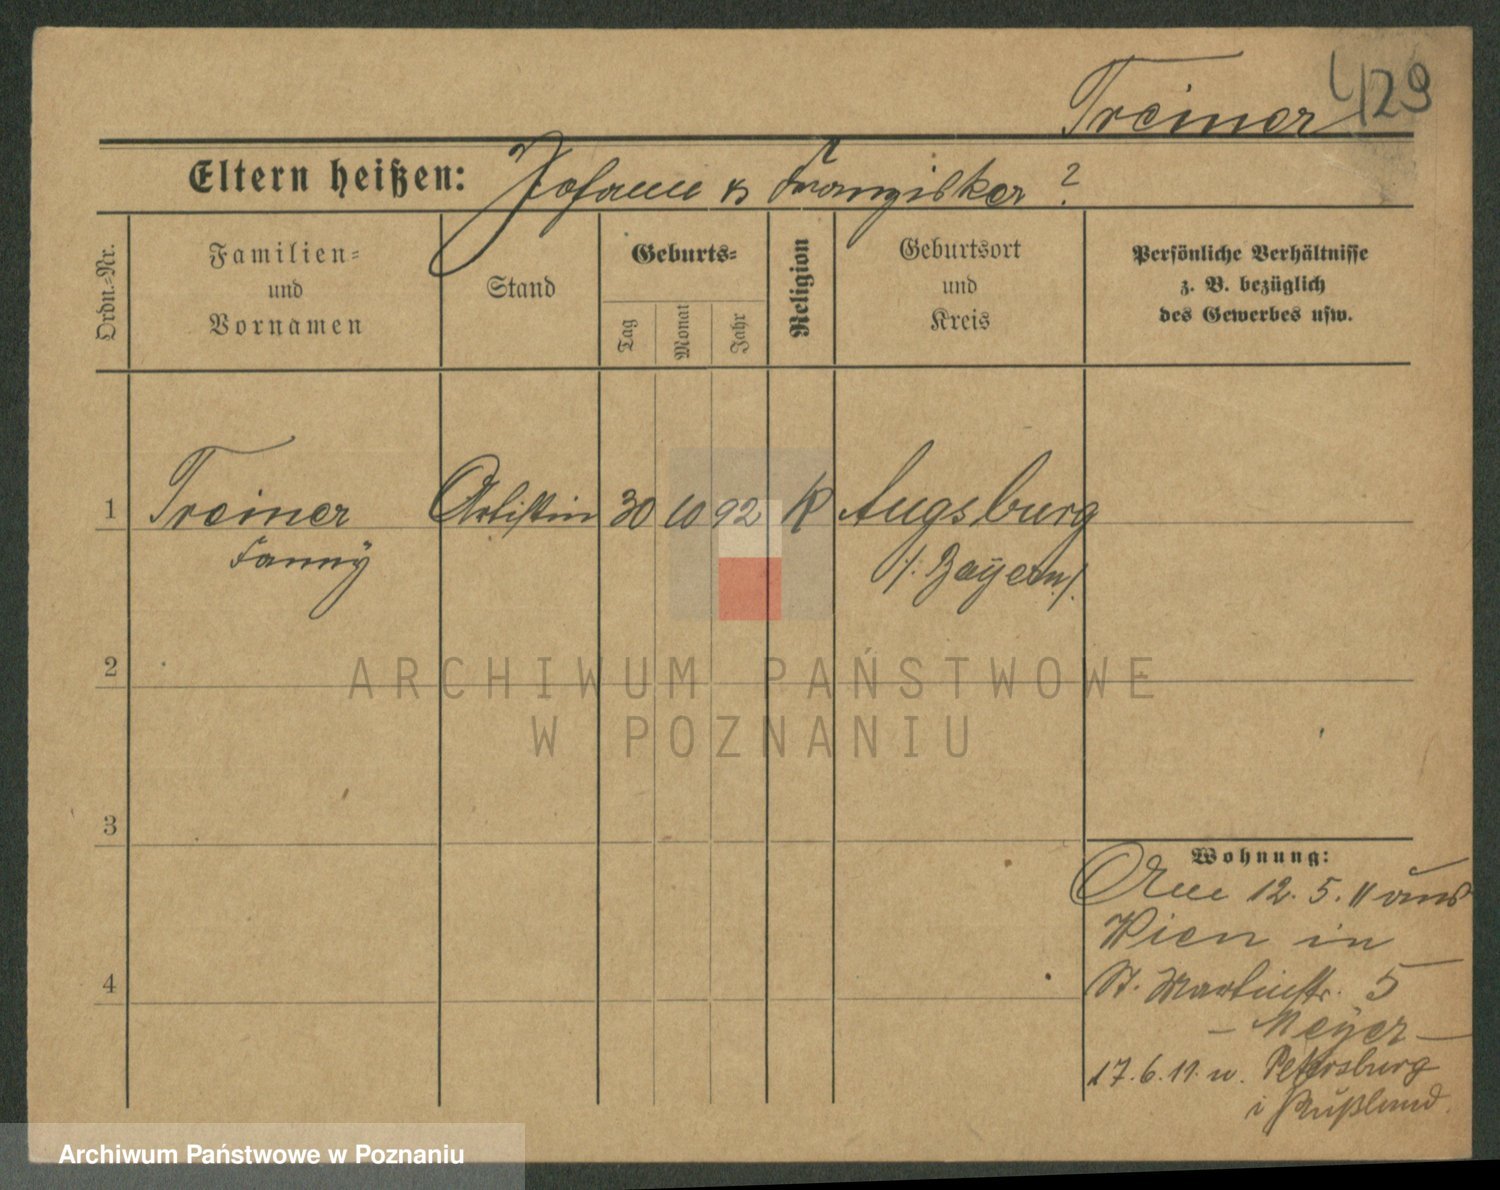 Treiner
429
Eltern heißen: Johann u Franziska ?
Ordn.-Nr.
Familien-
und
Vornamen
Stand
Geburts-
Tag
Monat
Jahr
Religion
Geburtsort
und
Kreis
Persönliche Verhältnisse
z. B. bezüglich
des Gewerbes usw.
1 Treiner Artistin 30 10 92 K Augsburg
Fanny /: Bayern :/
2
3
4
Wohnung:
Am 12. 5. 11 aus
Wien in
St. Martinstr. 5
- Meyer -
17. 6. 11. n. Petersburg
i Rußland
ARCHIWUM PAŃSTWOWE
W POZNANIU
Archiwum Państwowe w Poznaniu